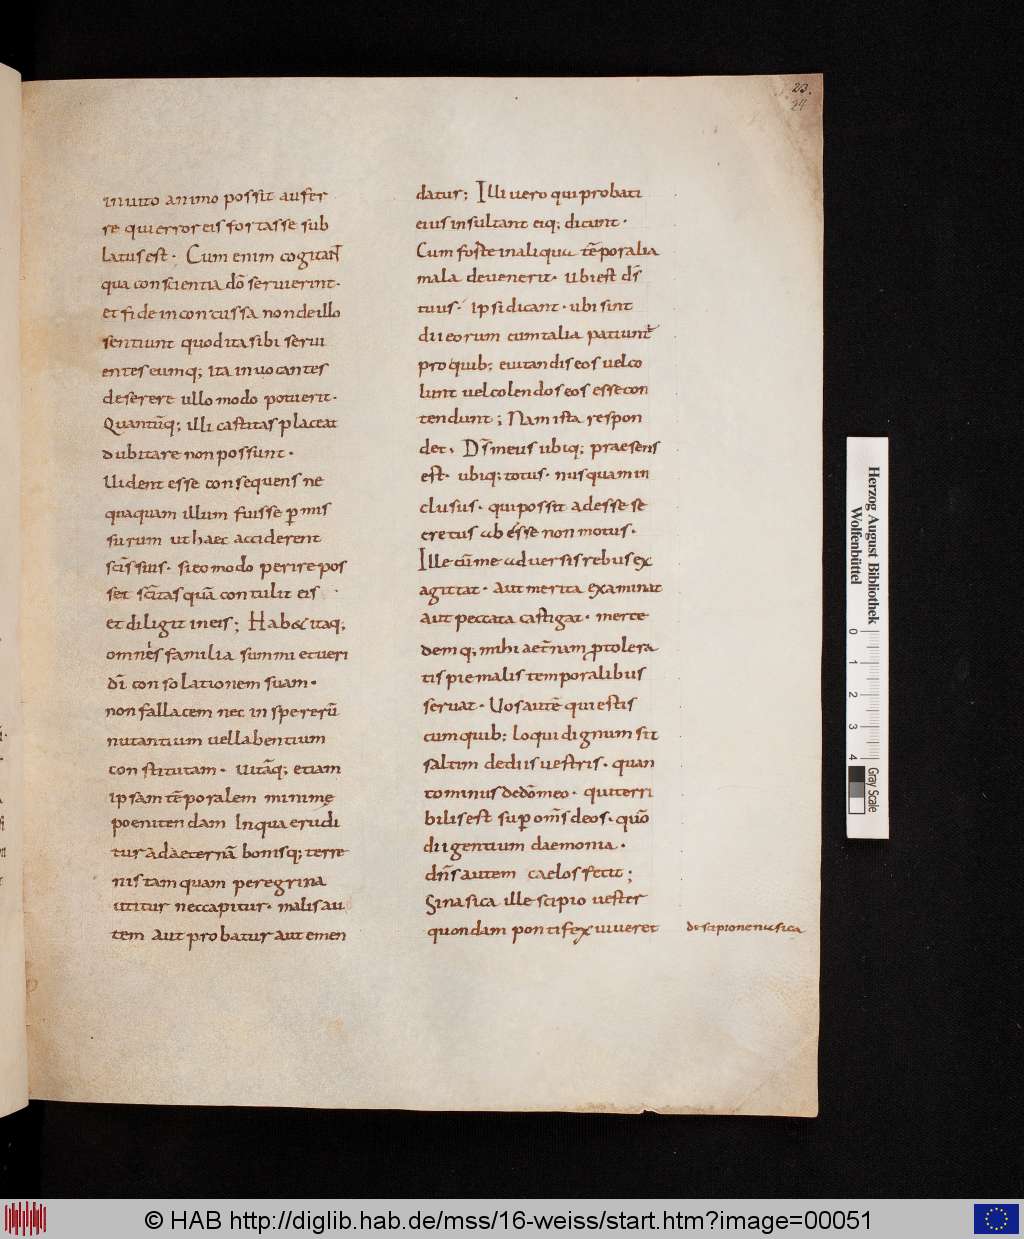 23.
24
inuito animo possit aufer
re qui error eis fortasse sub
latus est · Cum enim cogitan̄t
qua conscientia dō seruierint ·
et fide inconcussa non de illo
sentiunt quod ita sibi serui
entes eumq; ita inuocantes
deserere ullo modo potuerit ·
Quantūq; illi castitas placeat
dubitare non possunt ·
Uident esse consequens ne
quaquam illum fuisse p̱missu
surum ut haec acciderent
sc̄is suis · si eo modo perire pos
set sc̄itas quā contulit eis ·
et diligit in eis ; Hab& itaq;
omnes familia summi et ueri
dī consolationem suam ·
non fallacem nec in spe rerū
nutantium uel labentium
constitutam · Uitāq; etiam
ipsam tēporalem minime
poenitendam In qua erudi
tur ad aeternā bonisq; terre
nis tamquam peregrina
utitur nec capitur · malis au
tem aut probatur aut emen
datur ; Illi uero qui probati
eius insultant eiq; dicunt ·
Cum forte in aliqua tēporalia
mala deuenerit · Ubi est ds̄
tuus · ipsi dicant · ubi sint
dii eorum cum talia patiunt̄
pro quib; euitandis eos uel co
lunt uel colendos eos esse con
tendunt ; Nam ista respon
det · Ds̄ meus ubiq; praesens
est · ubiq; totus · nusquam in
clusus · qui possit adesse se
cretus abesse non motus ·
Ille cū me aduersis rebus ex
agitat · aut merita examinat
aut peccata castigat · merce
demq; mihi aet̄nam ꝓ tolera
tis pie malis temporalibus
seruat · Uos autē qui estis
cum quib; loqui dignum sit
saltim de diis uestris · quan
to minus de dō meo · qui terri
bilis est sup̱ om̄s deos · quō
dii gentium daemonia ·
dn̄s autem caelos fecit ;
Si nasica ille scipio uester
quondam pontifex uiueret
de scipione nasica
Herzog August Bibliothek
Wolfenbüttel
0 1 2 3 4
Gray Scale
© HAB http://diglib.hab.de/mss/16-weiss/start.htm?image=00051